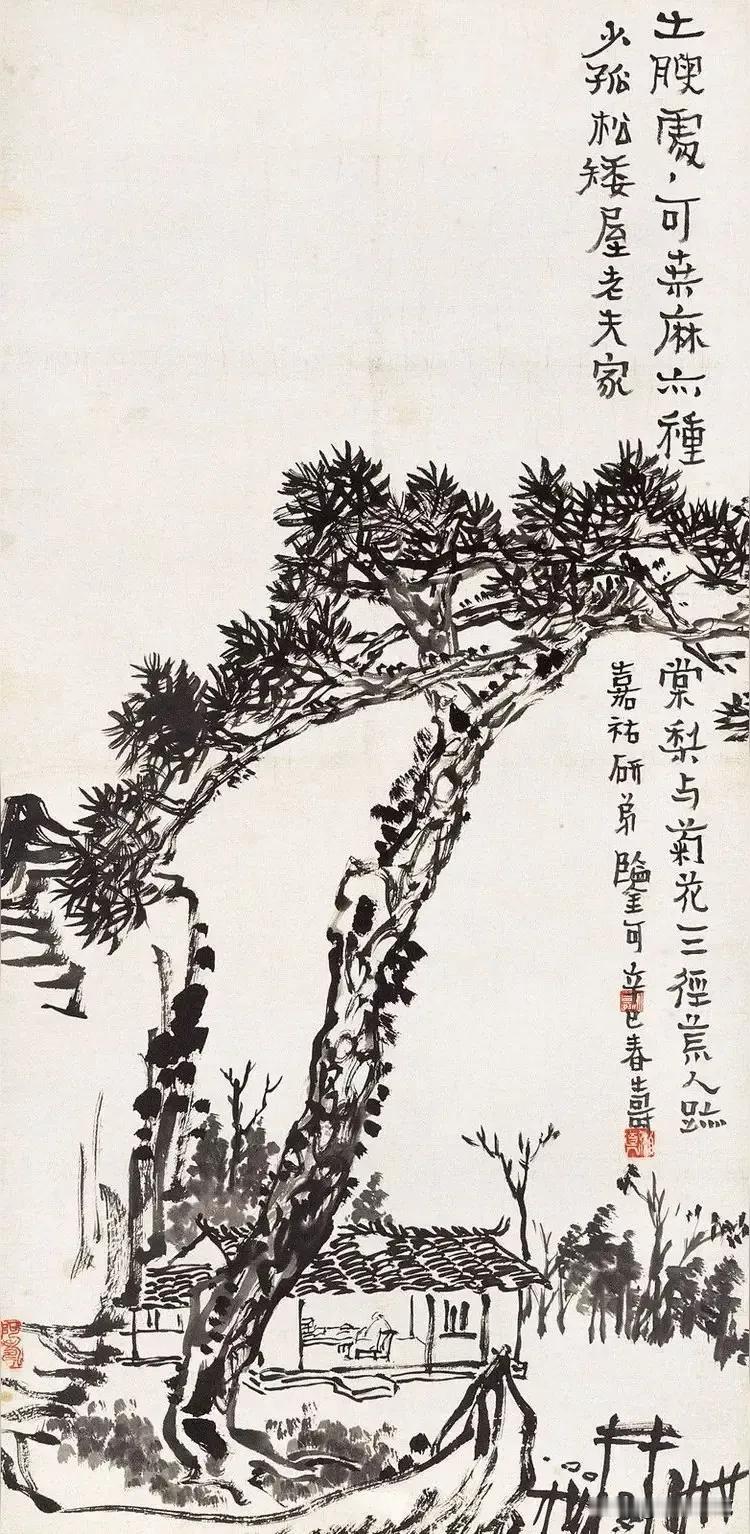 土腴處〻可桒麻亦種
棠梨与菊花三徑荒人跡
少孤松矮屋老夫家
嘉祐研弟鑒可辛巳春壽